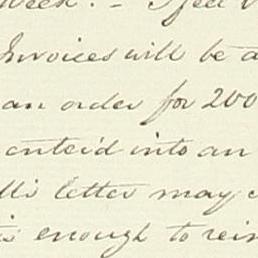 week. - I feel
Invoices will be a
an order for 200
enter'd into an
letter may
enough to rein